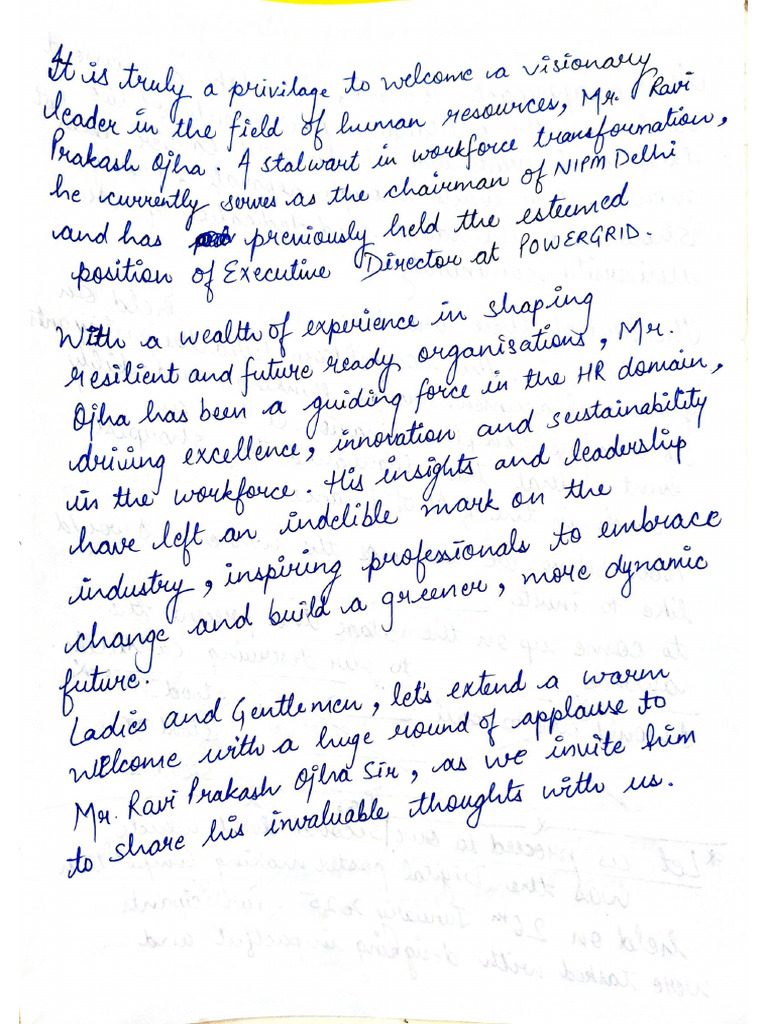 It is truly a privilage to welcome a visionary
leader in the field of human resources, Mr. Ravi
Prakash Ojha. A stalwart in workforce transformation,
he currently serves as the chairman of NIPM Delhi
and has previously held the esteemed
position of Executive Director at POWERGRID.
With a wealth of experience in shaping
resilient and future ready organisations, Mr.
Ojha has been a guiding force in the HR domain,
driving excellence, innovation and sustainability
in the workforce. His insights and leadership
have left an indelible mark on the
industry, inspiring professionals to embrace
change and build a greener, more dynamic
future.
Ladies and Gentlemen, let's extend a warm
welcome with a huge round of applause to
Mr. Ravi Prakash Ojha Sir, as we invite him
to share his invaluable thoughts with us.